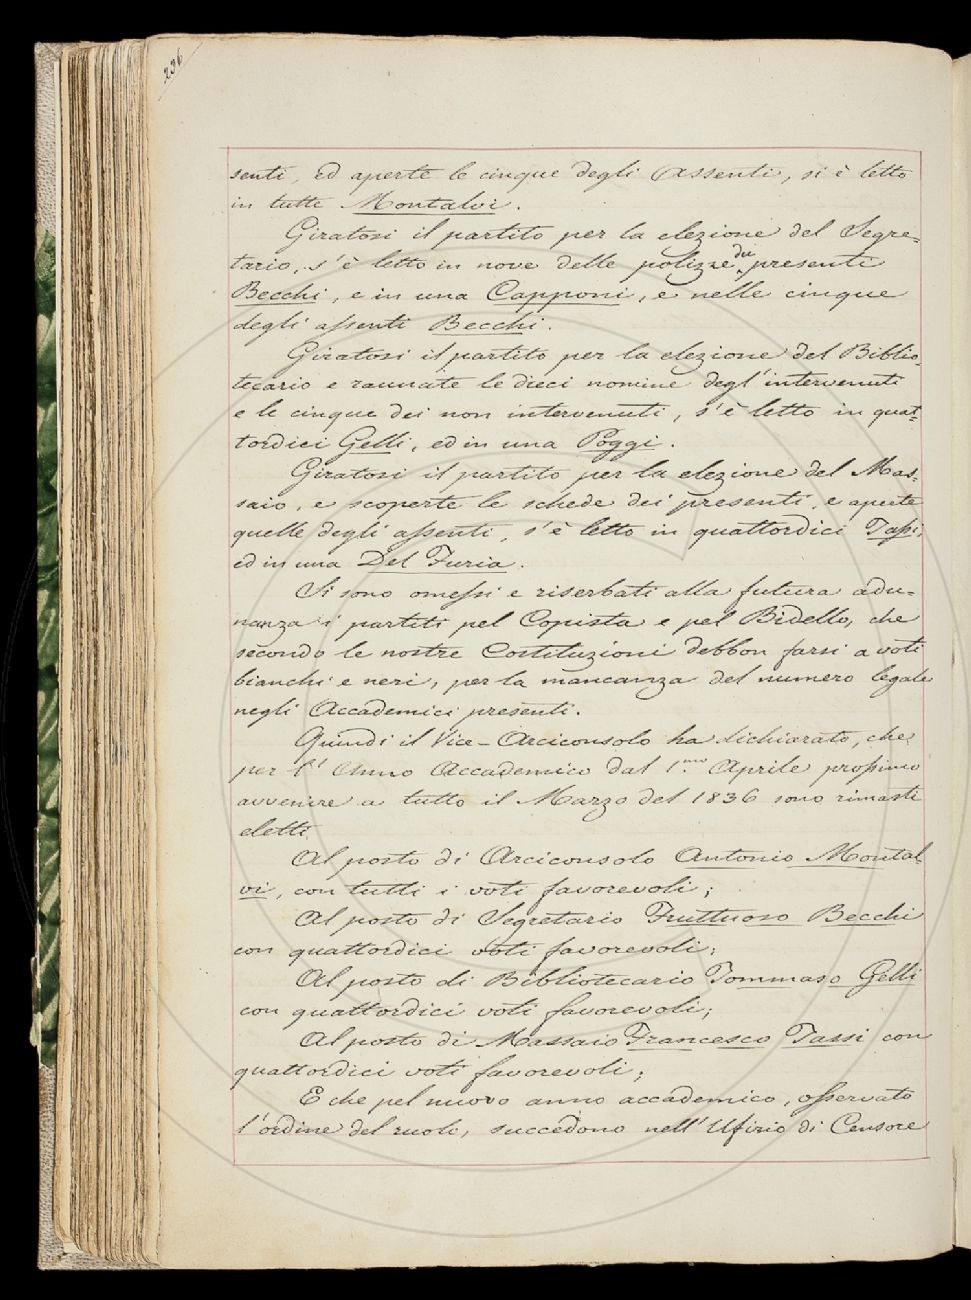 236
senti, ed aperte le cinque degli Assenti, si è letto
in tutte Montalvi.
Giratosi il partito per la elezione del Segre=
tario, s'è letto in nove delle polizze dei presenti
Becchi, e in una Capponi, e nelle cinque
degli assenti Becchi.
Giratosi il partito per la elezione del Biblio=
tecario e raunate le dieci nomine degl'intervenuti
e le cinque dei non intervenuti, s'è letto in quat=
tordici Gelli, ed in una Poggi.
Giratosi il partito per la elezione del Mas=
saio, e scoperte le schede dei presenti, e aperte
quelle degli assenti, s'è letto in quattordici Tassi,
ed in una Del Furia.
Si sono omessi e riserbati alla futura adu=
nanza i partiti pel Copista e pel Bidello, che
secondo le nostre Costituzioni debbon farsi a voti
bianchi e neri, per la mancanza del numero legale
negli Accademici presenti.
Quindi il Vice-Arciconsolo ha dichiarato, che
per l'Anno Accademico dal 1.mo Aprile prossimo
avvenire a tutto il Marzo del 1836 sono rimasti
eletti
Al posto di Arciconsolo Antonio Montal=
vi, con tutti i voti favorevoli;
Al posto di Segretario Fruttuoso Becchi
con quattordici voti favorevoli;
Al posto di Bibliotecario Tommaso Gelli
con quattordici voti favorevoli;
Al posto di Massaio Francesco Tassi con
quattordici voti favorevoli;
E che pel nuovo anno accademico, osservato
l'ordine del ruolo, succedono nell'Ufizio di Censore